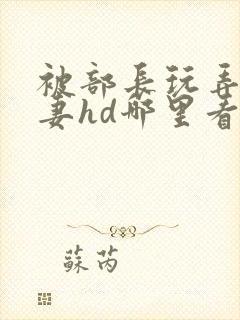 被部長玩弄
妻hd哪里看
蘇芮